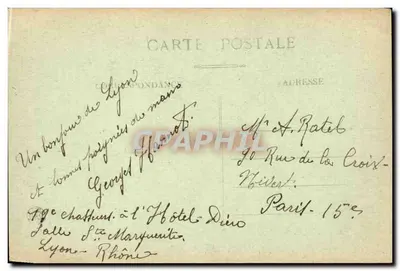 CARTE POSTALE
CORRESPONDANCE
ADRESSE
Un bonjour de Lyon
et bonnes poignées de mains
Georges
Mr A. Ratel
90 Rue de la Croix-
Nivert
Paris-15e
19e chasseurs à l'Hôtel-Dieu
Salle Ste Marguerite
Lyon-Rhône
CPAPHIL